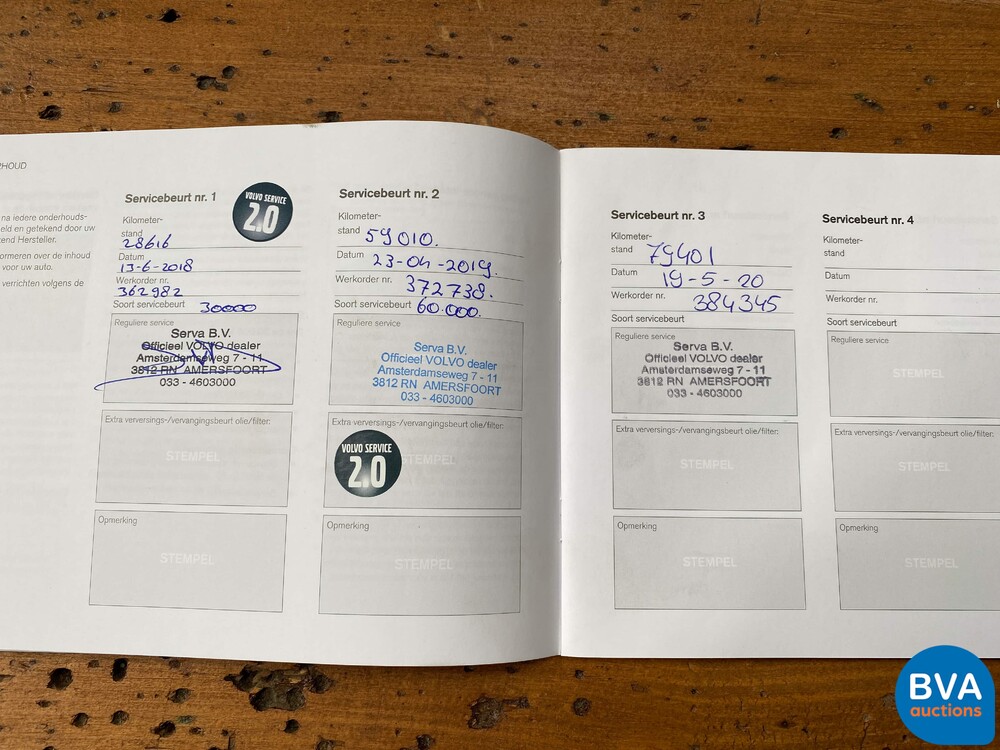 RHOUD
na iedere onderhouds-
eld en getekend door uw
end Hersteller.
ormeren over de inhoud
voor uw auto.
verrichten volgens de
Servicebeurt nr. 1
VOLVO SERVICE
2.0
Kilometer-
stand 28616
Datum
13-6-2018
Werkorder nr.
362982
Soort servicebeurt 30000
Reguliere service
Serva B.V.
Officieel VOLVO dealer
Amsterdamseweg 7 - 11
3812 RN AMERSFOORT
033 - 4603000
Extra verversings-/vervangingsbeurt olie/filter:
STEMPEL
Opmerking
STEMPEL
Servicebeurt nr. 2
Kilometer-
stand 59010.
Datum 23-04-2019.
Werkorder nr. 372738.
Soort servicebeurt 60.000.
Reguliere service
Serva B.V.
Officieel VOLVO dealer
Amsterdamseweg 7 - 11
3812 RN AMERSFOORT
033 - 4603000
Extra verversings-/vervangingsbeurt olie/filter:
VOLVO SERVICE
2.0
STEMPEL
Opmerking
STEMPEL
Servicebeurt nr. 3
Kilometer-
stand 79401
Datum 19-5-20
Werkorder nr. 384345
Soort servicebeurt
Reguliere service
Serva B.V.
Officieel VOLVO dealer
Amsterdamseweg 7 - 11
3812 RN AMERSFOORT
033 - 4603000
Extra verversings-/vervangingsbeurt olie/filter:
STEMPEL
Opmerking
STEMPEL
Servicebeurt nr. 4
Kilometer-
stand
Datum
Werkorder nr.
Soort servicebeurt
Reguliere service
STEMPEL
Extra verversings-/vervangingsbeurt olie/filter:
STEMPEL
Opmerking
STEMPEL
BVA
auctions